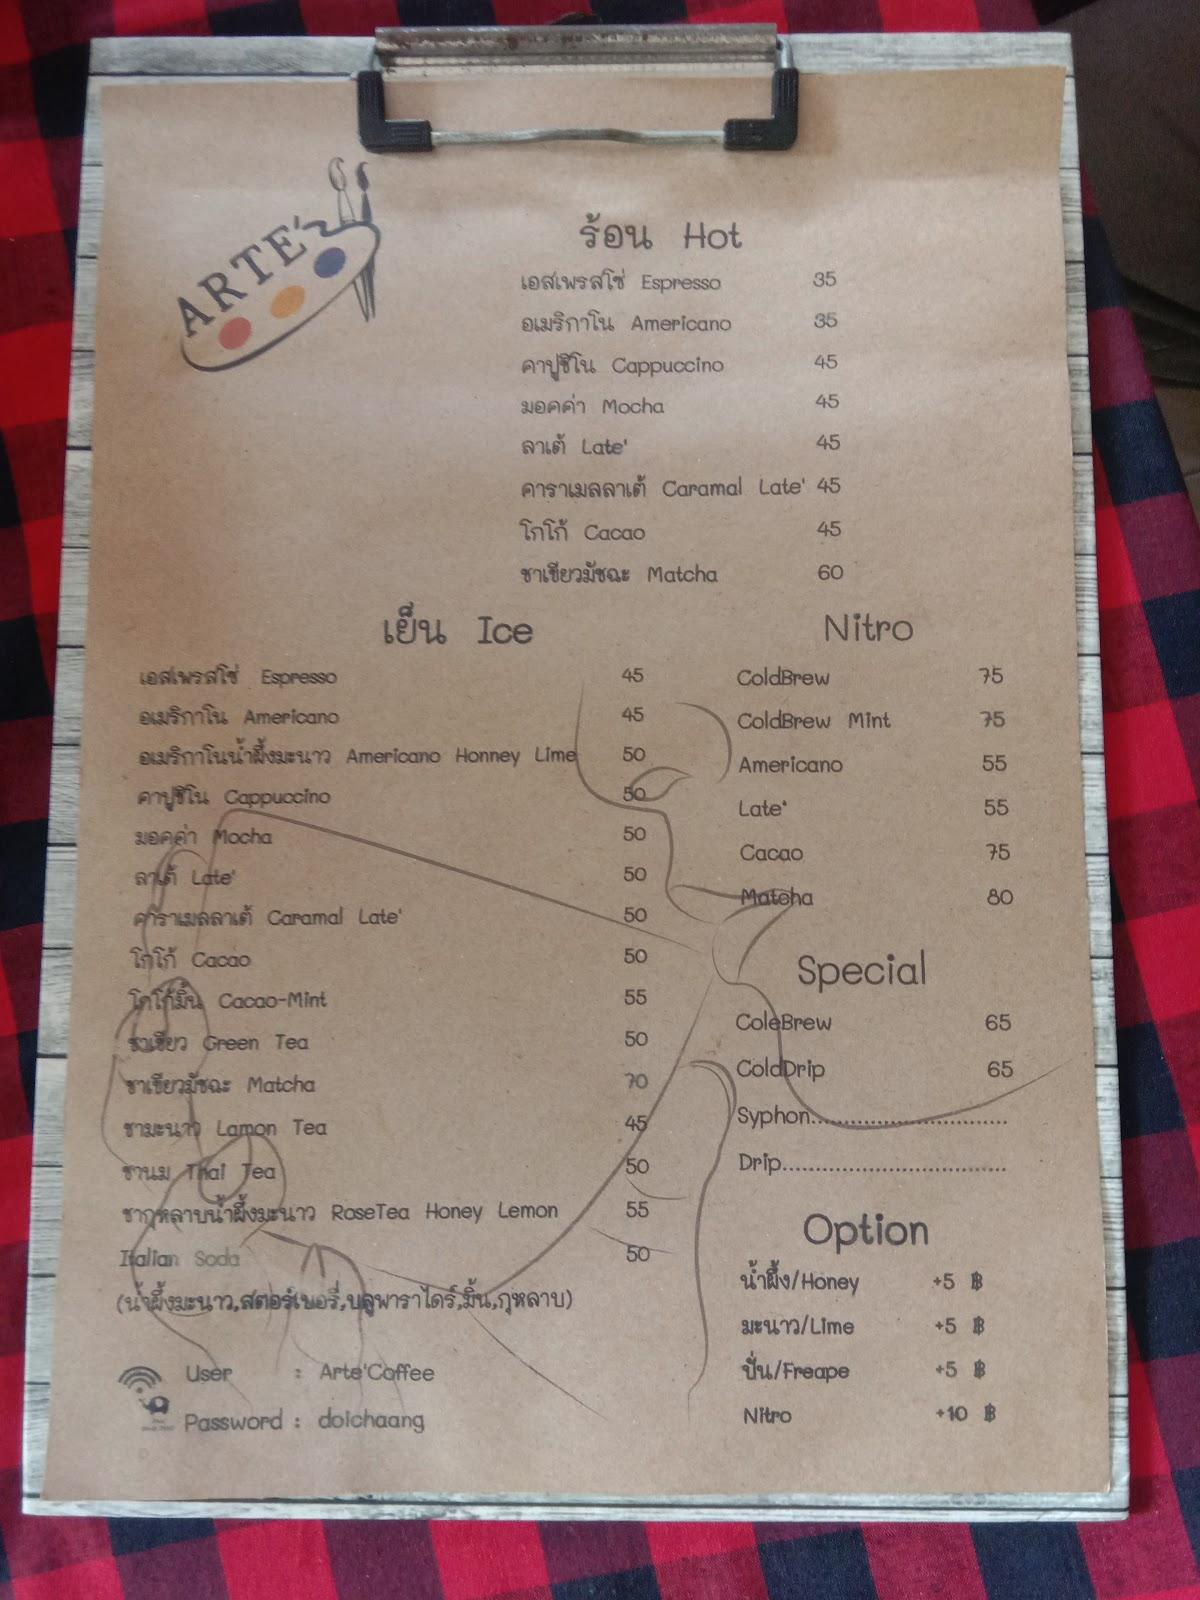 ARTE'
ร้อน Hot
เอสเพรสโซ่ Espresso 35
อเมริกาโน Americano 35
คาปูชิโน Cappuccino 45
มอคค่า Mocha 45
ลาเต้ Late' 45
คาราเมลลาเต้ Caramal Late' 45
โกโก้ Cacao 45
ชาเขียวมัชฉะ Matcha 60
เย็น Ice
เอสเพรสโซ่ Espresso 45
อเมริกาโน Americano 45
อเมริกาโนน้ำผึ้งมะนาว Americano Honney Lime 50
คาปูชิโน Cappuccino 50
มอคค่า Mocha 50
ลาเต้ Late' 50
คาราเมลลาเต้ Caramal Late' 50
โกโก้ Cacao 50
โกโก้มิ้น Cacao-Mint 55
ชาเขียว Green Tea 50
ชาเขียวมัชฉะ Matcha 70
ชามะนาว Lamon Tea 45
ชานม Thai Tea 50
ชากุหลาบน้ำผึ้งมะนาว RoseTea Honey Lemon 55
Italian Soda 50
(น้ำผึ้งมะนาว,สตอร์เบอรี่,บลูพาราไดร์,มิ้น,กุหลาบ)
User : Arte'Coffee
Password : doichaang
Nitro
ColdBrew 75
ColdBrew Mint 75
Americano 55
Late' 55
Cacao 75
Matcha 80
Special
ColeBrew 65
ColdDrip 65
Syphon..............................
Drip..................................
Option
น้ำผึ้ง/Honey +5 ฿
มะนาว/Lime +5 ฿
ปั่น/Freape +5 ฿
Nitro +10 ฿